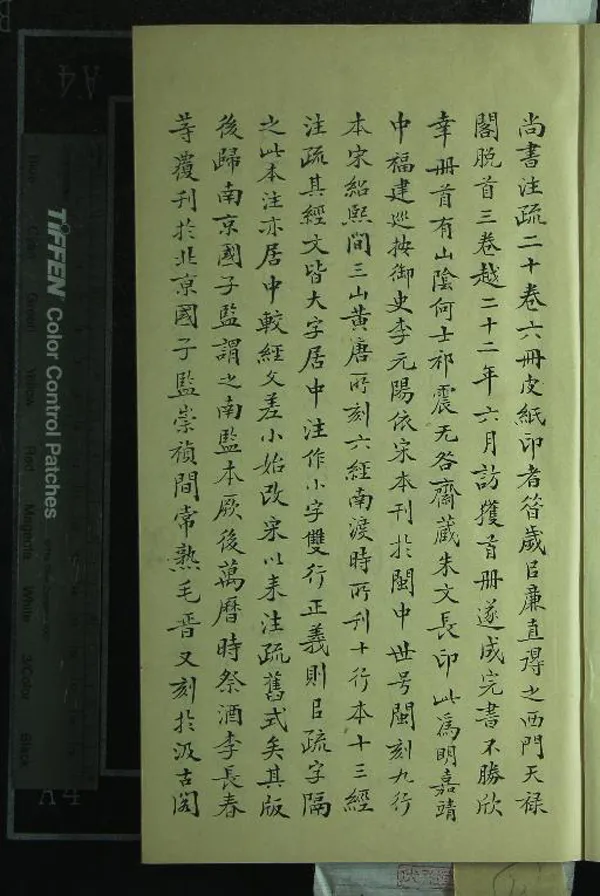 尚書注疏二十卷六冊皮紙印者㫺歲㠯廉直得之西門天祿
閣脫首三卷越二十二年六月訪獲首冊遂成完書不勝欣
幸冊首有山陰何士祁震无咎齋藏朱文長印此爲明嘉靖
中福建巡按御史李元陽依宋本刊於閩中世号閩刻九行
本宋紹熙間三山黄唐所刻六經南渡時所刊十行本十三經
注疏其經文皆大字居中注作小字雙行正義則㠯疏字隔
之此本注亦居中較經文差小始改宋以來注疏舊式矣其版
後歸南京國子監謂之南監本厥後萬曆時祭酒李長春
等覆刊於北京國子監崇禎間常熟毛晉又刻於汲古閣
TIFFEN Color Control Patches
Blue
Cyan
Green
Yellow
Red
Magenta
White
3/Color
Black
A4
A4